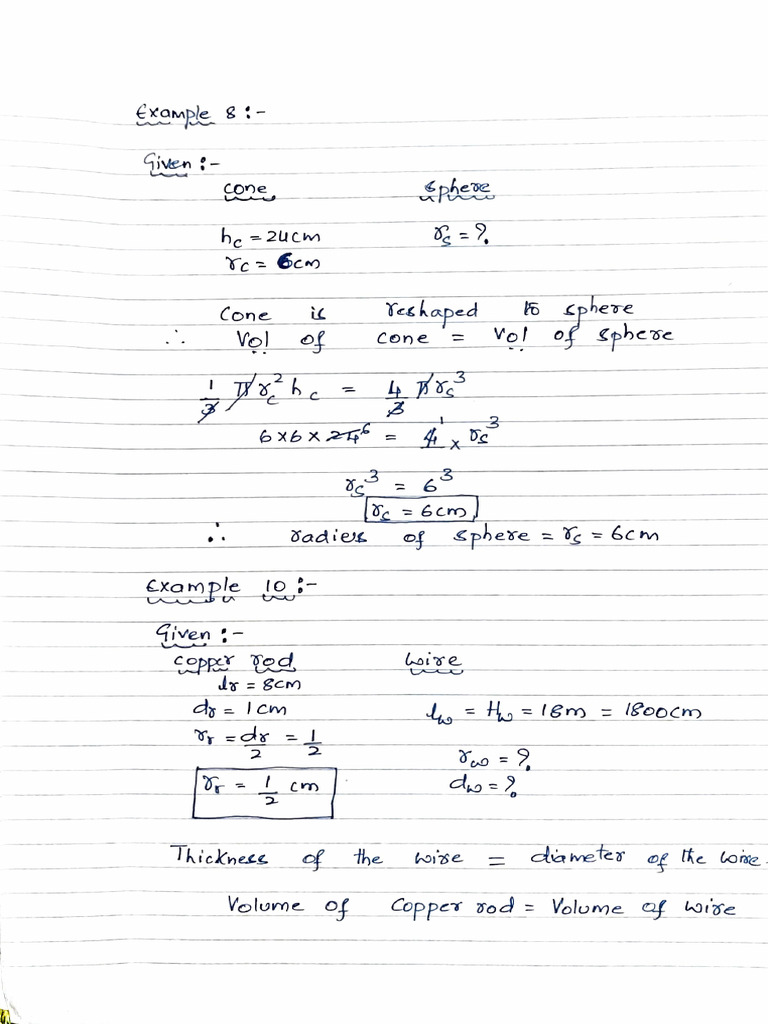 Example 8 :-
Given :-
cone sphere
hc = 24cm rs = ?
rc = 6cm
Cone is reshaped to sphere
∴ Vol of cone = Vol of sphere
1/3 π rc² hc = 4/3 π rs³
6×6×24 6 = 4 1 × rs³
rs³ = 6³
rs = 6cm
∴ radies of sphere = rs = 6cm
Example 10 :-
Given :-
copper rod wire
lr = 8cm
dr = 1cm lw = Hw = 18m = 1800cm
rr = dr/2 = 1/2
rw = ?
rr = 1/2 cm dw = ?
Thickness of the wire = diameter of the wire.
Volume of Copper rod = Volume of wire